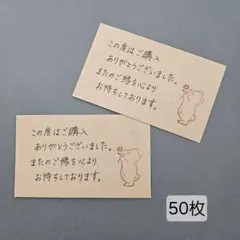 この度はご購入
ありがとうございました。
またのご縁を心より
お待ちしております。
この度はご購入
ありがとうございました。
またのご縁を心より
お待ちしております。
50枚